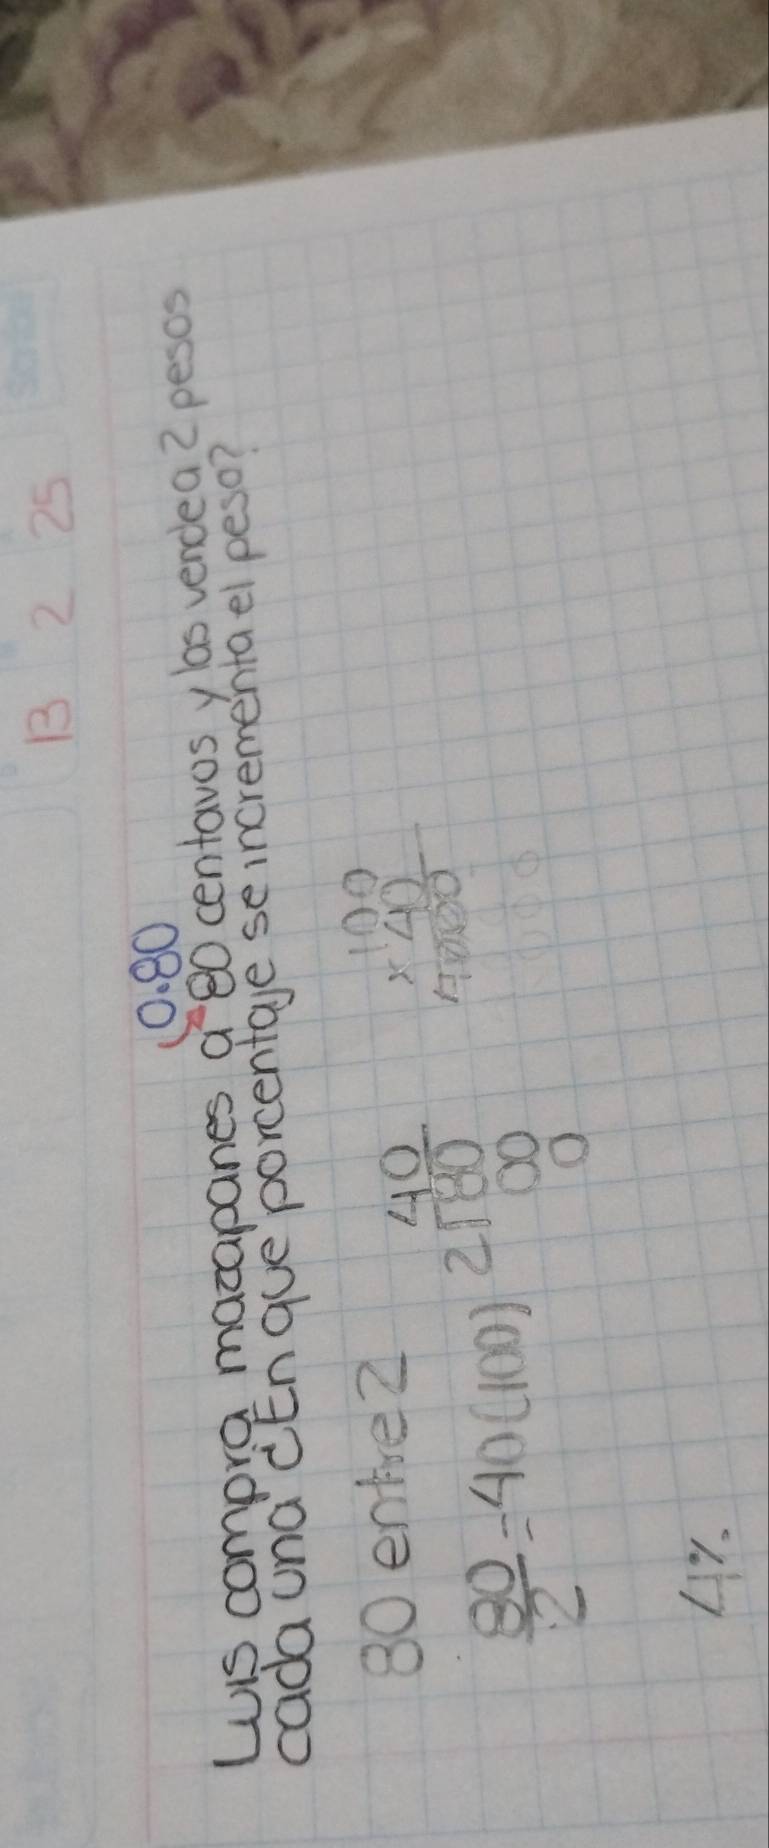 13 2 25
0.80
Luis compra mazapanes a 80 centavos y las vende a 2 pesos
cada una ¿En que porcentaje se incrementa el peso?
80 entre 2
80/2 = 40(100)
40
2√80
00
0
100
x 40
4000
4%.